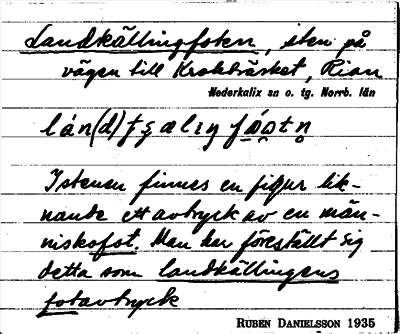 Landkällingfoten, sten på
vägen till Krokträsket, Rian
Nederkalix sn o. tg. Norrb. län
lán(d)ţşælıŋ fǿọtṇ
I stenen finnes en figur lik-
nande ett avtryck av en män-
niskofot. Man har föreställt sig
detta som landkällingens
fotavtryck
RUBEN DANIELSSON 1935